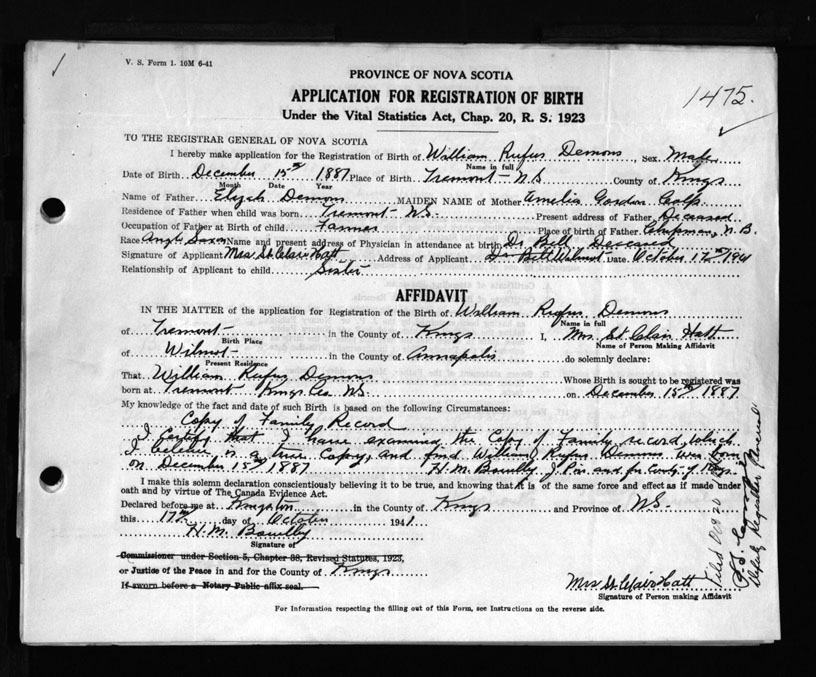 V. S. Form 1. 10M 6-41
PROVINCE OF NOVA SCOTIA
1475.
APPLICATION FOR REGISTRATION OF BIRTH
Under the Vital Statistics Act, Chap. 20, R. S. 1923
TO THE REGISTRAR GENERAL OF NOVA SCOTIA
I hereby make application for the Registration of Birth of William Rufus Demons Sex Male
Name in full
Date of Birth December 15th 1887 Place of Birth Tremont - N.S. County of Kings
Month Date Year
Name of Father Elijah Demons MAIDEN NAME of Mother Amelia Gordon
Residence of Father when child was born Tremont - N.S. Present address of Father Deceased
Occupation of Father at Birth of child Farmer Place of birth of Father Chipman, N.B.
Race Anglo Saxon Name and present address of Physician in attendance at birth Dr. Bell Deceased
Signature of Applicant Mrs St. Clair Hatt Address of Applicant Wilmot Date October 17th 1941
Relationship of Applicant to child Sister
AFFIDAVIT
IN THE MATTER of the application for Registration of the Birth of William Rufus Demons
Name in full
of Tremont - in the County of Kings I, Mrs St Clair Hatt
Birth Place Name of Person Making Affidavit
of Wilmot - in the County of Annapolis do solemnly declare:
Present Residence
That William Rufus Demons Whose Birth is sought to be registered was
born at Tremont Kings Co. N.S. on December 15th 1887
My knowledge of the fact and date of such Birth is based on the following Circumstances:
Copy of Family Record
I certify that I have examined the Copy of Family record, which
I believe is a true Copy, and find William Rufus Demons was born
on December 15th 1887 H. M. J. P. in and for County of Kings
I make this solemn declaration conscientiously believing it to be true, and knowing that it is of the same force and effect as if made under
oath and by virtue of The Canada Evidence Act.
Declared before me at Kingston in the County of Kings and Province of N.S.
this 17th day of October 1941
H. M.
Signature of
Commissioner under Section 5, Chapter 38, Revised Statutes, 1923,
or Justice of the Peace in and for the County of Kings
If sworn before a Notary Public affix seal.
Mrs St. Clair Hatt
Signature of Person making Affidavit
For Information respecting the filling out of this Form, see Instructions on the reverse side.
Filed
Deputy Registrar General